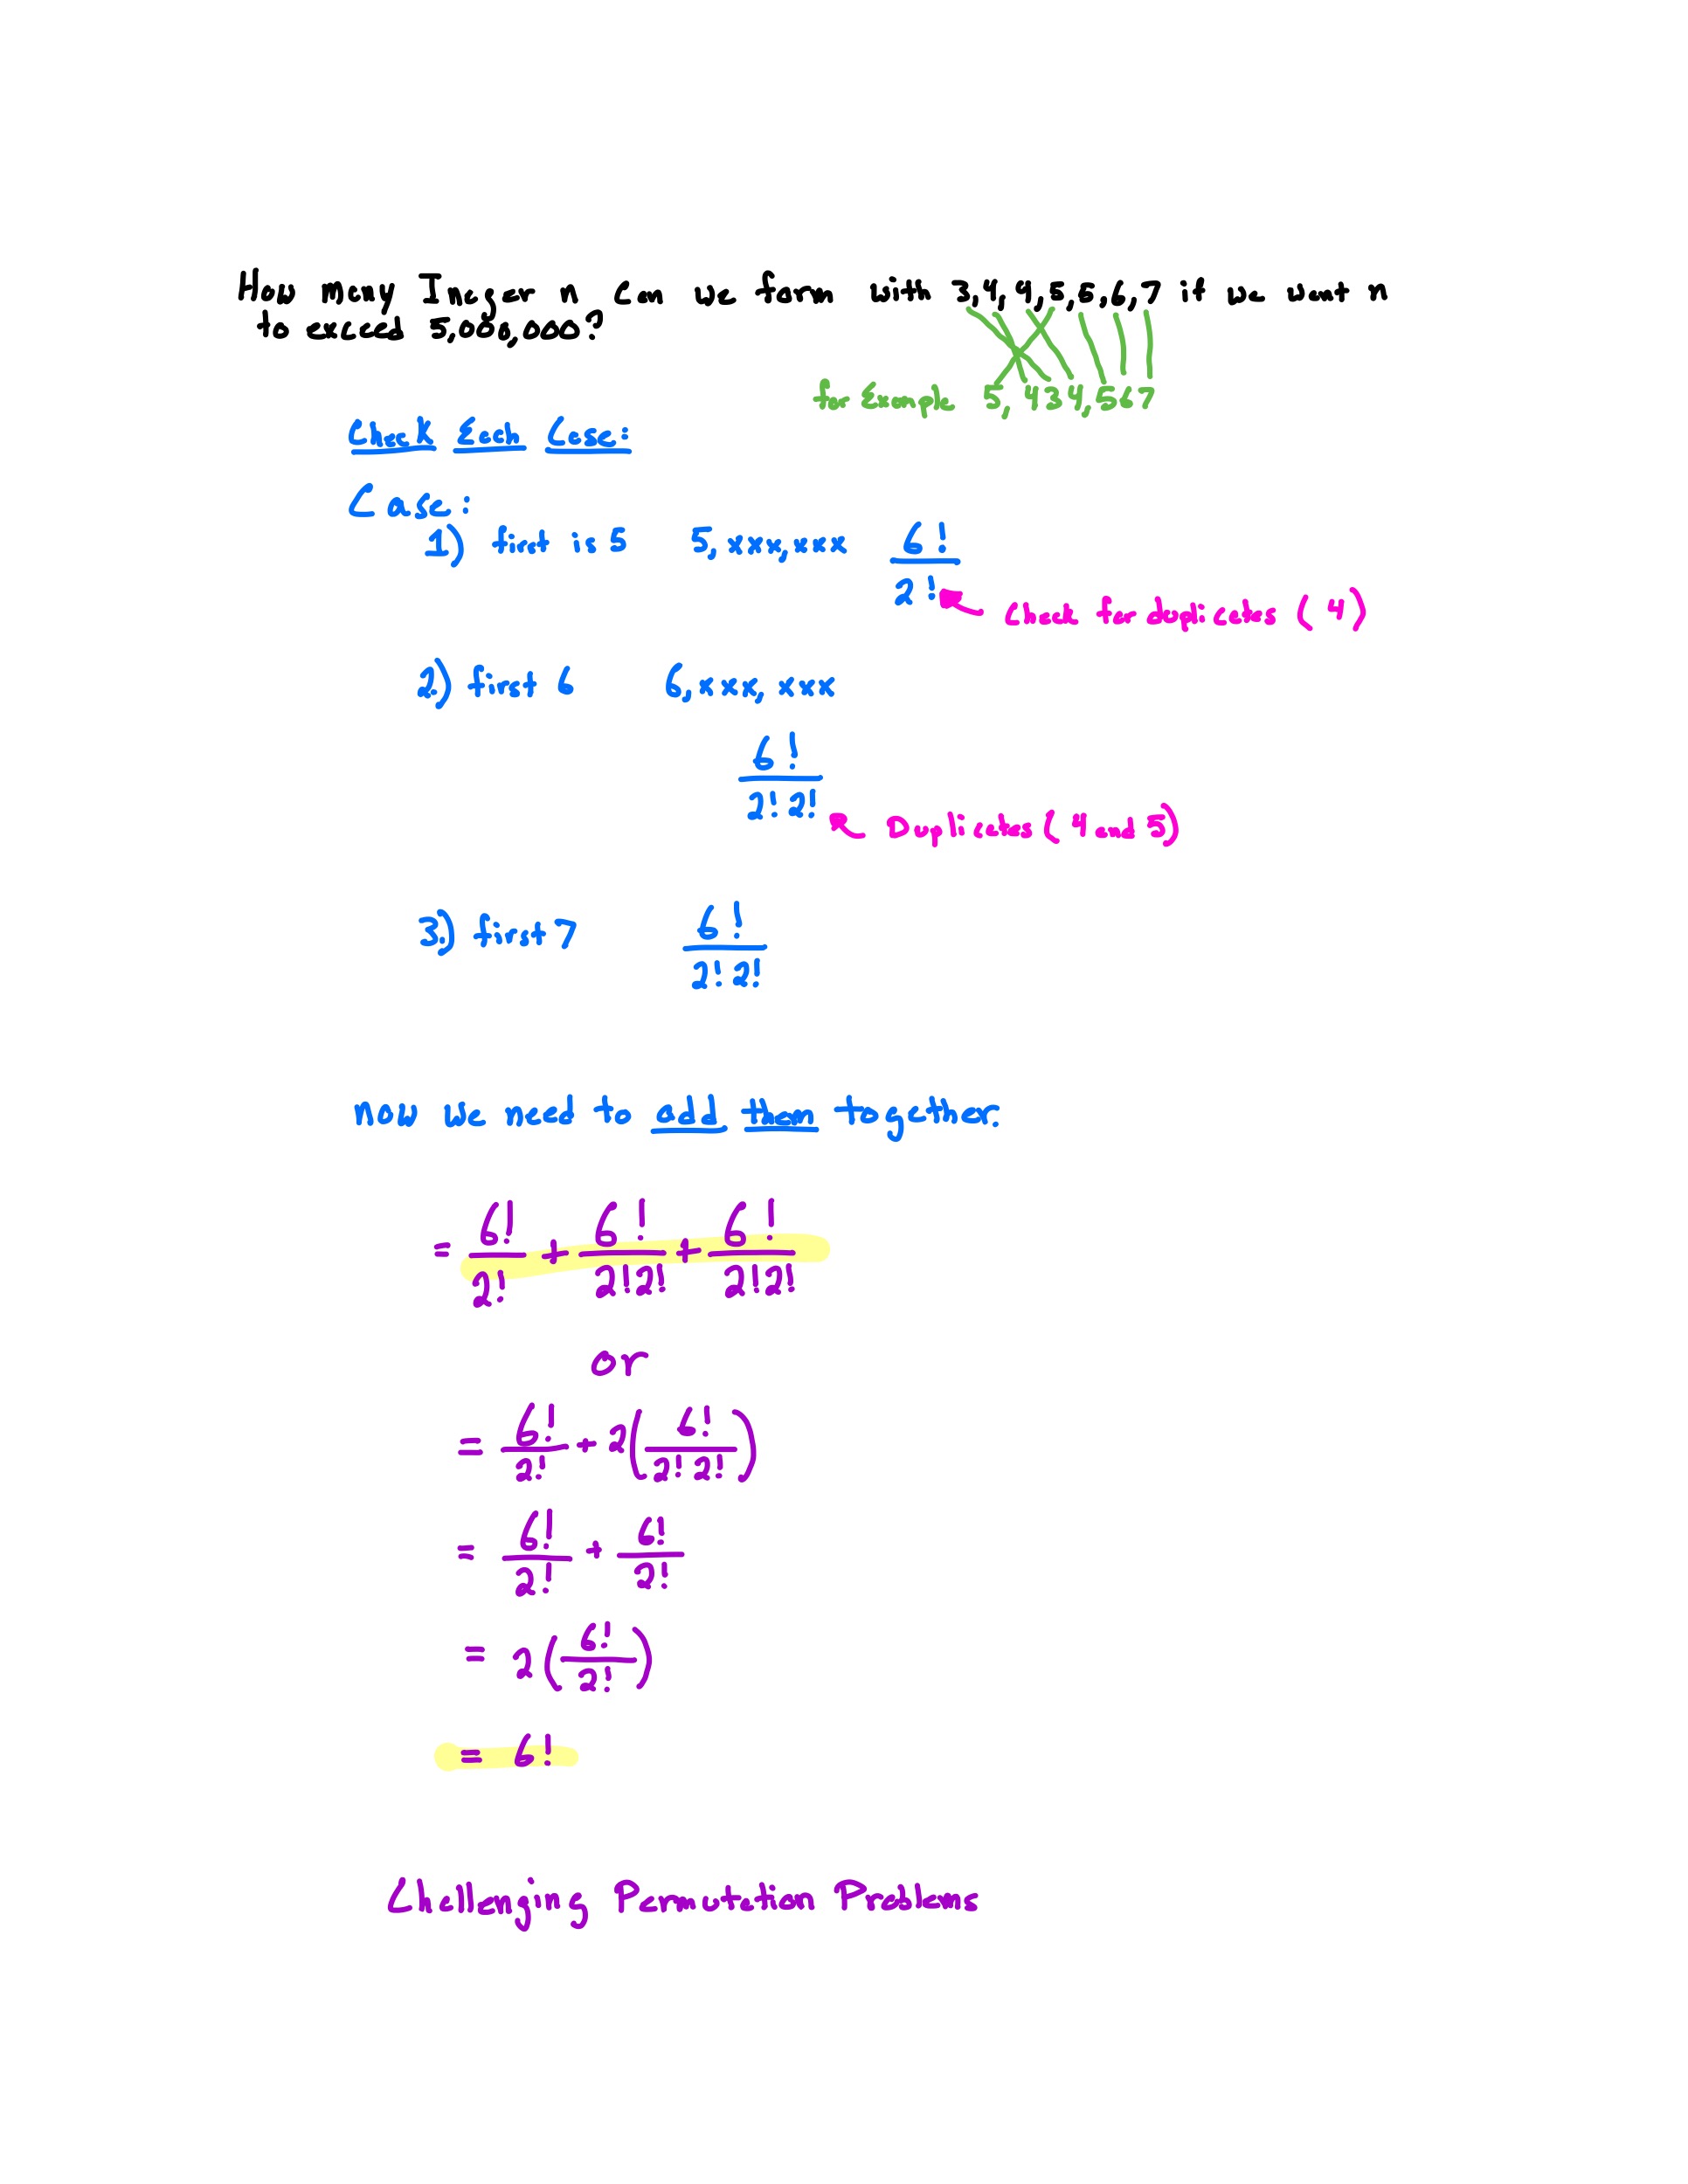 How many Ineger n can we form with 3,4,4,5,5,6,7 if we want n
to exceed 5,000,000?
for Example 5,434,567
Check Each Case:
Case:
1) first is 5 5,xxx,xxx 6!/2!
Check for duplicates (4)
2.) first 6 6,xxx,xxx
6!/2!2!
Duplicates (4 and 5)
3.) first 7 6!/2!2!
now we need to add them together.
= 6!/2! + 6!/2!2! + 6!/2!2!
or
= 6!/2! + 2(6!/2!2!)
= 6!/2! + 6!/2!
= 2(6!/2!)
= 6!
Challenging Permutation Problems